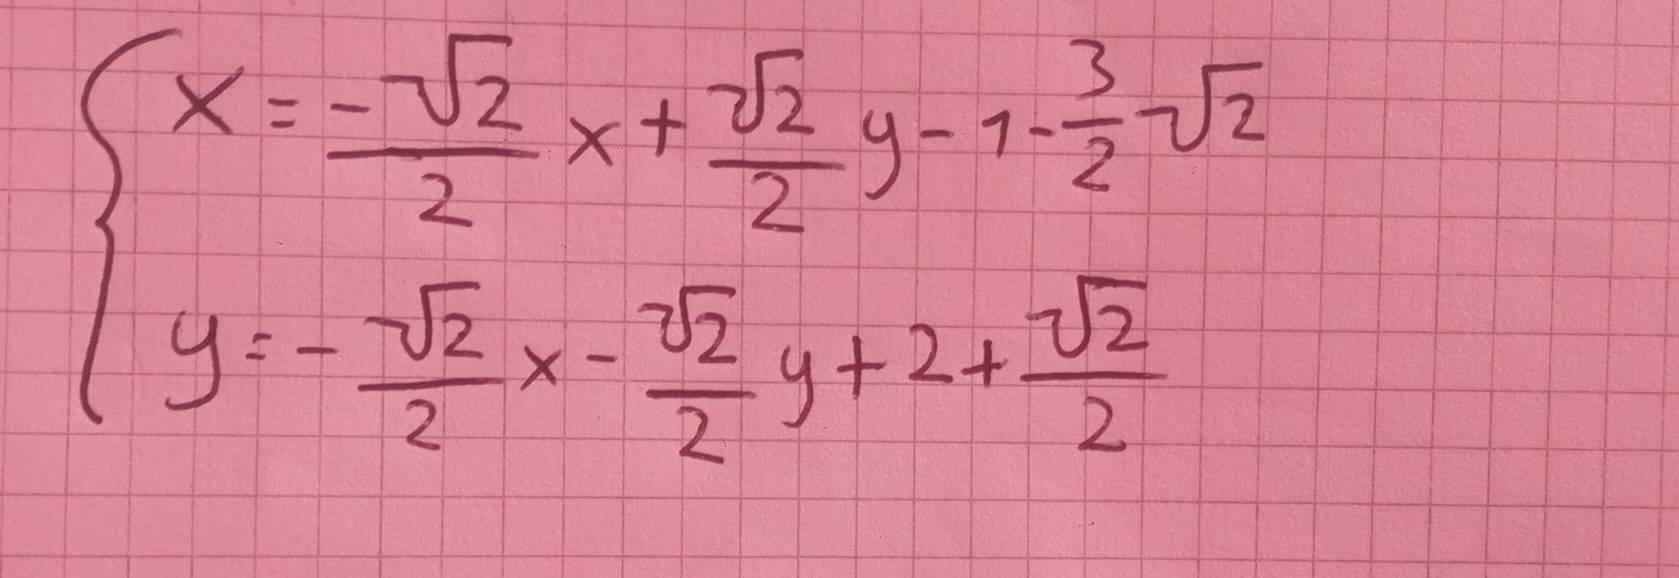 x = \frac{-\sqrt{2}}{2} x + \frac{\sqrt{2}}{2} y - 1 - \frac{3}{2} \sqrt{2}
y = - \frac{\sqrt{2}}{2} x - \frac{\sqrt{2}}{2} y + 2 + \frac{\sqrt{2}}{2}